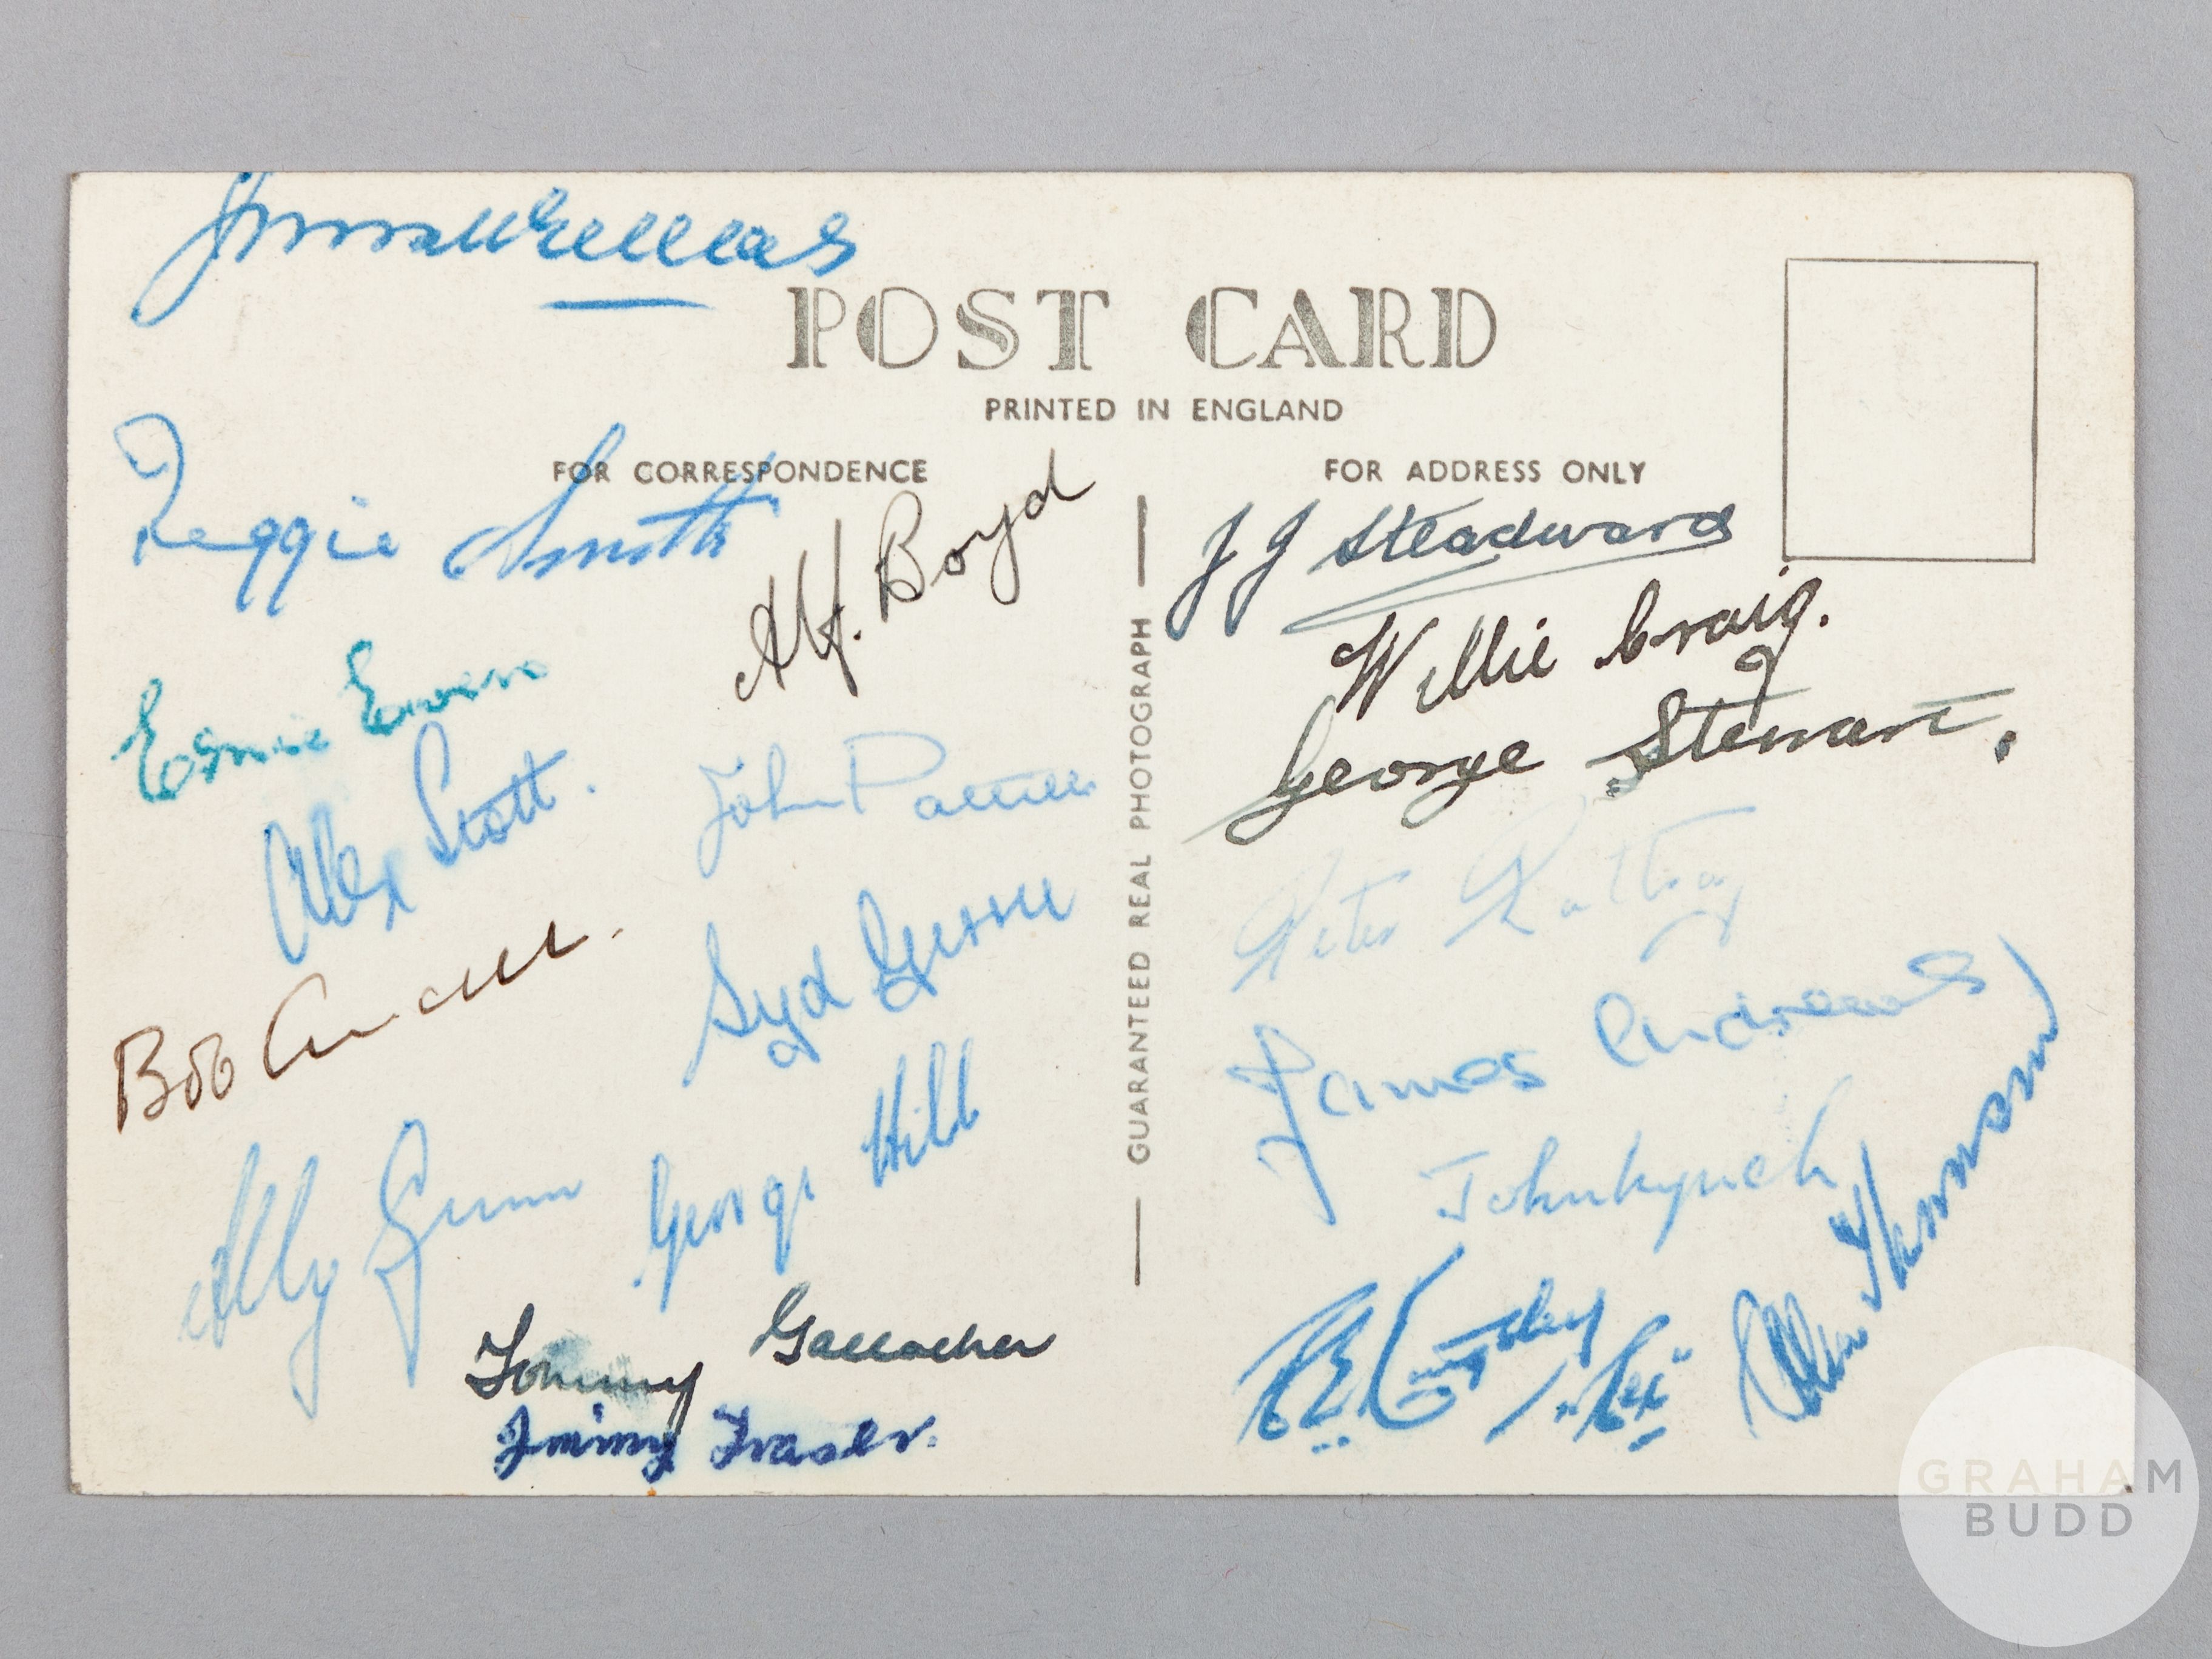 POST CARD
PRINTED IN ENGLAND
FOR CORRESPONDENCE
FOR ADDRESS ONLY
Reggie Smith
Alf. Boyd
Ernie Ewen
Alex Scott.
John Pattillo
Bob
Syd Gerrie
Ally Gunn
George Hill
Tommy Gallacher
Jimmy Fraser.
GUARANTEED REAL PHOTOGRAPH
J J Steadward
Willie Craig.
George Stewart.
Peter Rattray
James Andrews
John Lynch
"Rex"
Thomson
GRAHAM
BUDD